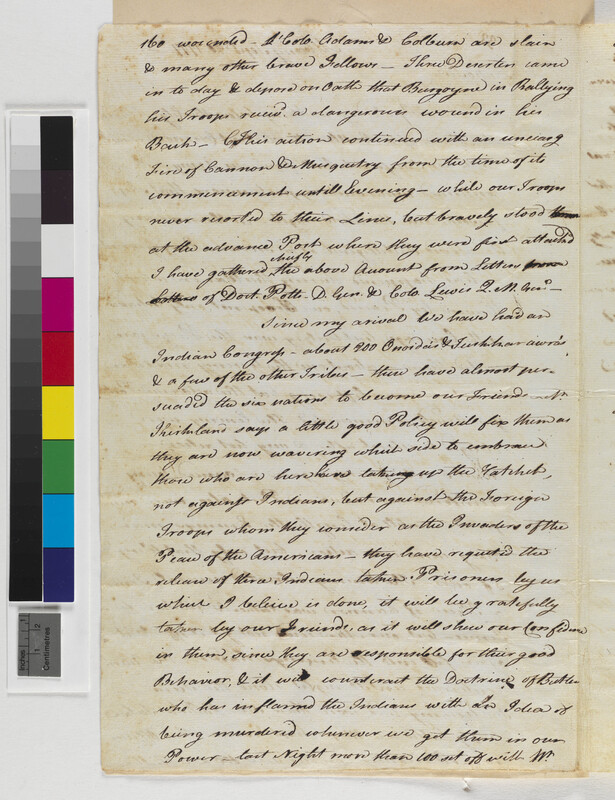 160 wounded – Lt Colo. Adams & Colburn are slain
& many other brave Fellows – Three Deserters came
in to day & depose on Oath that Burgoyne in Rallying
his Troops recd. a dangerous wound in his
Back – This action continued with an unceasg
Fire of Cannon & Musquetry from the time of its
commencement untill Evening – while our Troops
never resorted to their Lines, but bravely stood
at the advance Post where they were first attack'd
I have gathered chiefly the above Account from Letters from
Letters of Doct. Potts D. Gen. & Colo. Lewis Q. M. Genl –
Since my arival We have had an
Indian Congress – about 200 Onordais & Tuskharawras
& a few of the other Tribes – these have almost per-
suaded the six nations to become our Friends – Mr
Kirkland says a little good Policy will fix them as
they are now wavering which side to embrace
those who are here have taken up the Hatchet,
not against Indians, but against the Foreign
Troops whom they consider as the Invaders of the
Peace of the Americans – they have requested the
release of three Indians taken Prisoners by us
which I believe is done, it will be gratefully
taken by our Friends, as it will shew our Confidence
in them, since they are responsible for their good
Behavior, & it will counteract the Doctrine of Butler
who has inflamed the Indians with an Idea of
being murdered whenever we get them in our
Power – last Night more than 100 set off with Mr.
Inches
1
1
2
Centimetres